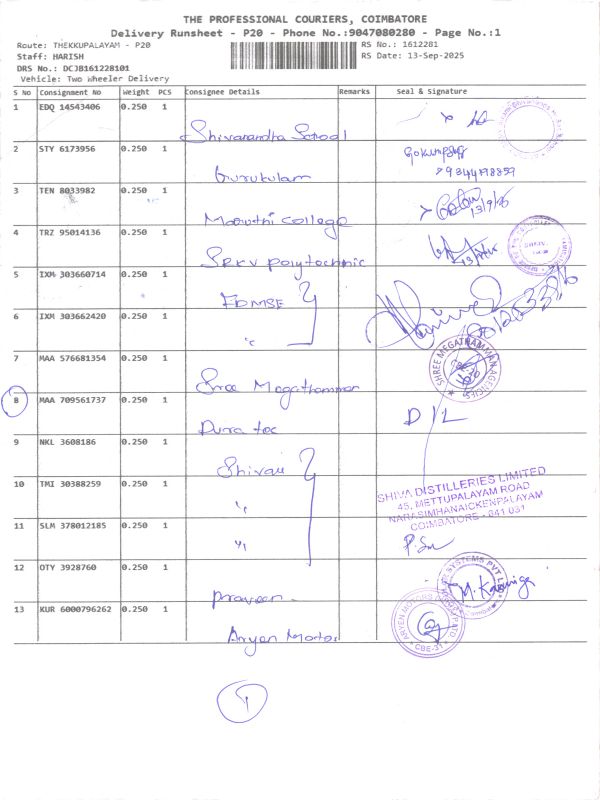 THE PROFESSIONAL COURIERS, COIMBATORE
Delivery Runsheet - P20 - Phone No.:9047080280 - Page No.:1
Route: THEKKUPALAYAM - P20 RS No.: 1612281
Staff: HARISH RS Date: 13-Sep-2025
DRS No.: DCJB161228101
Vehicle: Two Wheeler Delivery
S No Consignment No Weight PCS Consignee Details Remarks Seal & Signature
1 EDQ 14543406 0.250 1
School
2 STY 6173956 0.250 1
Gurukulam
3 TEN 8033982 0.250 1
Maruthi College 13/9/25
4 TRZ 95014136 0.250 1
SRKV Polytechnic
5 IXM 303660714 0.250 1
FDMSE
6 IXM 303662420 0.250 1
7 MAA 576681354 0.250 1
Sree Megathamman
SHREE MEGATHAMMAN AGENCIES
8 MAA 709561737 0.250 1
Dura tec D/L
9 NKL 3608186 0.250 1
Shivaa
10 TMI 30388259 0.250 1
"
SHIVA DISTILLERIES LIMITED
45, METTUPALAYAM ROAD
NARASIMHANAICKENPALAYAM
COIMBATORE - 641 031
11 SLM 378012185 0.250 1
"
12 OTY 3928760 0.250 1
Praveen
SYSTEMS PVT
13 KUR 6000796262 0.250 1
Aryan Motor
ARYEN MOTORS
CBE-31
1